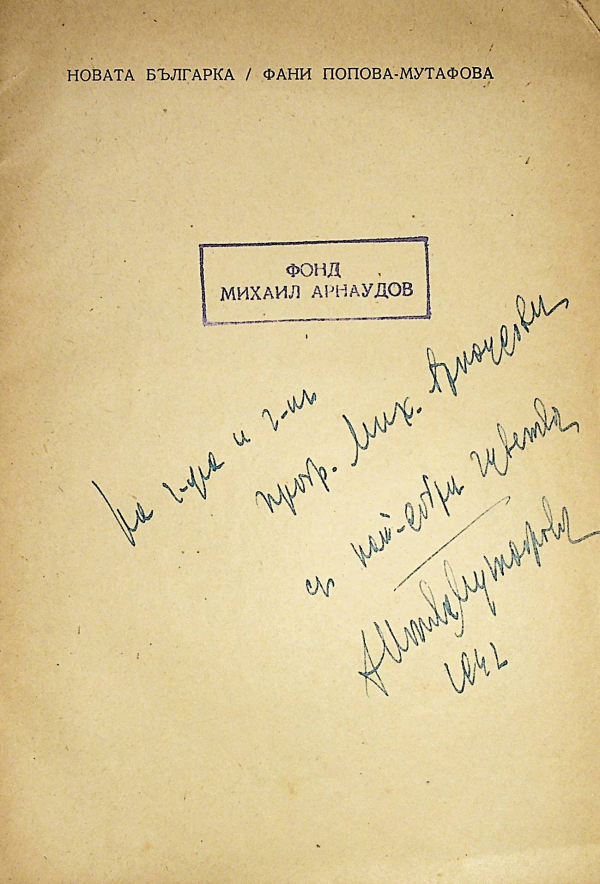 НОВАТА БЪЛГАРКА / ФАНИ ПОПОВА-МУТАФОВА
ФОНД
МИХАИЛ АРНАУДОВ
На г-жа и г-нъ
проф. Мих. Арнаудовъ
съ най-добри чувства
Мутафова
1942